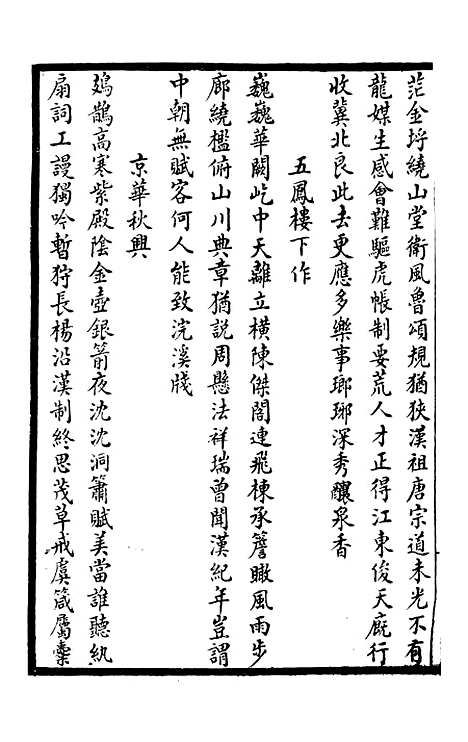 茫金埒繞山堂衛風魯頌規猶狹漢祖唐宗道未光不有
龍媒生感會難驅虎帳制要荒人才正得江東俊天廄行
收冀北良此去更應多樂事瑯琊深秀釀泉香
五鳳樓下作
巍巍華闕屹中天離立橫陳傑閣連飛棟承簷瞰風雨步
廊繞檻俯山川典章猶説周懸法祥瑞曾聞漢紀年豈謂
中朝無賦客何人能致浣溪牋
京華秋興
鳷鵲高寒紫殿陰金壺銀箭夜沈沈洞簫賦美當誰聽紈
扇詞工謾獨吟暫狩長楊沿漢制終思茂草戒虞箴屬櫜